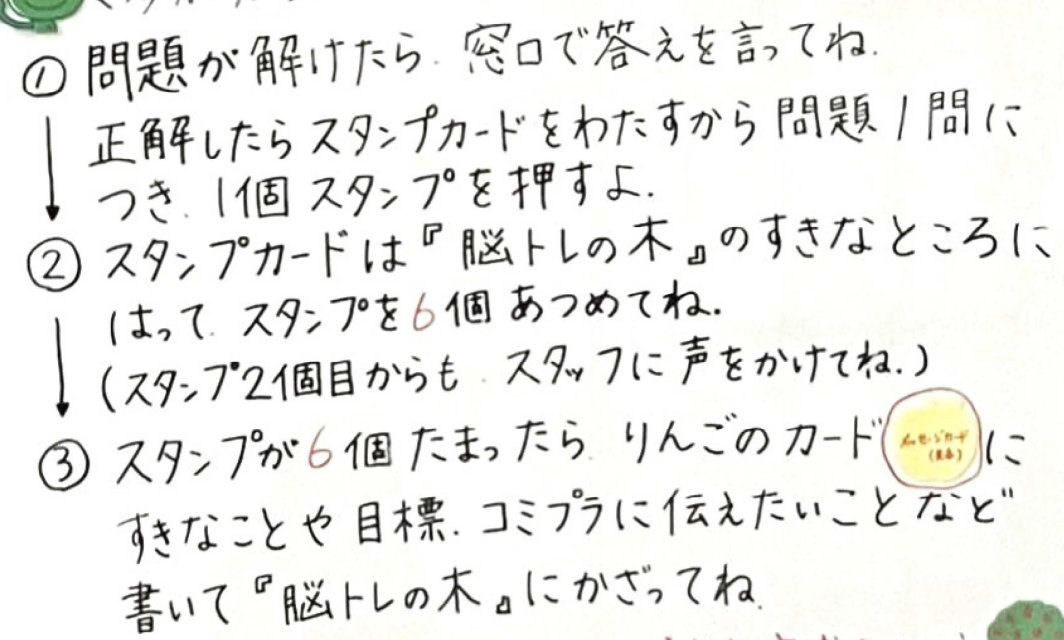 ① 問題が解けたら、窓口で答えを言ってね.
正解したらスタンプカードをわたすから問題1問に
つき、1個スタンプを押すよ.
② スタンプカードは『脳トレの木』のすきなところに
はって、スタンプを6個あつめてね.
(スタンプ2個目からも、スタッフに声をかけてね.)
③ スタンプが6個たまったら、りんごのカード メッセージカード に
すきなことや目標、コミプラに伝えたいことなど
書いて『脳トレの木』にかざってね.